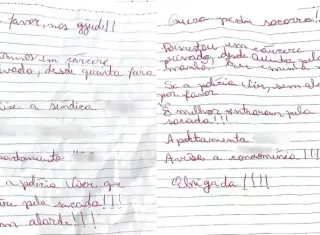 favor, nos ajude!!
em carcere
ivado, desde quinta feira
vise a sindica
partamento
a policia vier, que
tre pela sacada!!!
em alarde!!!
Quero pedir socorro!!
estou em carcere
privado, desde quinta pela
manhã. Que
Se a policia vier, sem ala
por favor
É melhor entrarem pela
sacada!!!
Apartamento
Avise a !!!
Obrigada!!!!